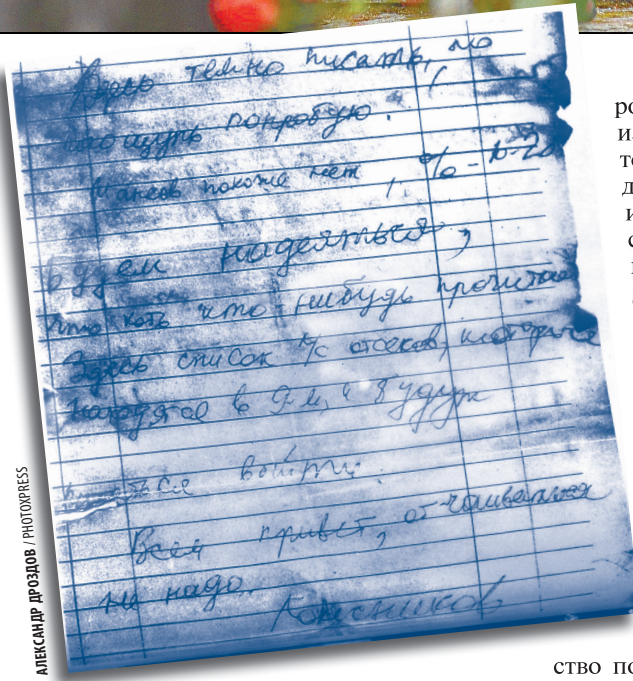 Здесь темно писать, но
на ощупь попробую.
Шансов похоже нет, % 10-20
Будем надеяться,
что хоть кто нибудь прочитает
Здесь список л/с отсеков, которые
находятся в 9-м и будут
пытаться выйти.
Всем привет, отчаиваться
не надо.
Колесников
АЛЕКСАНДР ДРОЗДОВ / PHOTOXPRESS
ро
ство по